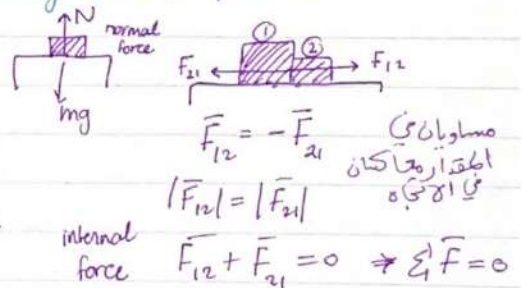 N
normal
force
mg
① ②
F₂₁ F₁₂
F̅₁₂ = - F̅₂₁
مساويان في
المقدار معاكسان
في الاتجاه
|F̅₁₂| = |F̅₂₁|
internal
force
F̅₁₂ + F̅₂₁ = 0 → Σ F̅ = 0